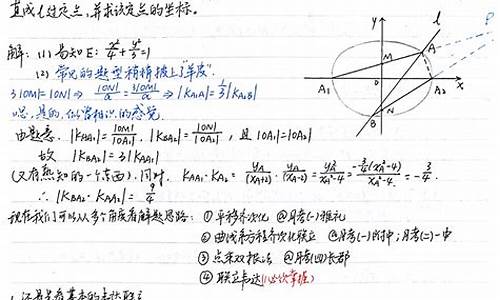 直线l过定点,并求该定点的坐标。
解: (1) 易知E: x²/4 + y²/3 = 1
(2) 常见的题型稍稍披上了"羊皮".
3|OM|=|ON| ⇒ |ON|/a = 3|OM|/a ⇒ |k_{A1A}| = 1/3 |k_{A2B}|
嗯,是的,似曾相识的感觉
由题意. |k_{BA1}| = |OM|/|OA1| . |k_{BA2}| = |ON|/|OA2| , 且 |OA1|=|OA2|
故 |k_{BA2}| = 3|k_{AA1}|
(又有熟知的一个东西). 同时. k_{AA1}·k_{A2} = y_A/(x_A+2) · y_A/(x_A-2) = y_A²/(x_A²-4) = -3/4(x_A²-4)/(x_A²-4) = -3/4.
∴ |k_{BA2}·k_{AA1}| = 9/4
现在我们可以从多个角度看解题思路: ① 平移齐次化 @月考(一)雅礼
② 曲线系方程齐次化联立 @月考(一)附中;月考(二)一中
③ 点乘双根法 @月考(四)长郡
④ 联立韦达(必须掌握)
y
l
P
A
M
A1
O
A2
x
N
B